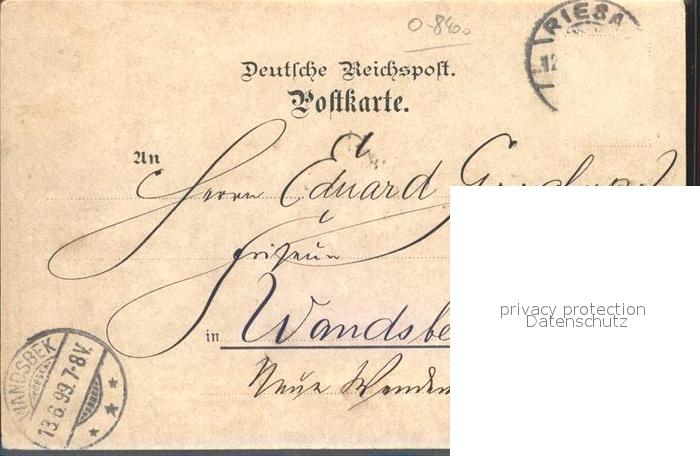 0-8400
RIESA
12
Deutsche Reichspost.
Postkarte.
An
Herrn Eduard
Friseur
in Wandsbe
Neue
WANDSBEK
13.6.99.7-8V.
privacy protection
Datenschutz